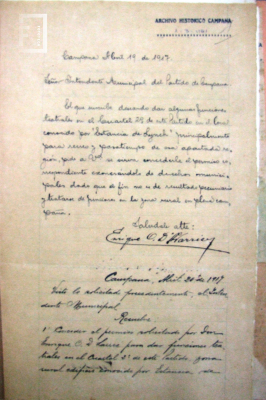 ARCHIVO HISTORICO CAMPANA
Campana Abril 19 de 1917
Señor Intendente Municipal del Partido de Campana
El que suscribe deseando dar algunas funciones
teatrales en el Cuartel 2º de este Partido en el local
conocido por "Estancia de Lynch" principalmente
para recreo y pasatiempo de esa apartada re-
gión, pide á Vd. se sirva concederle el permiso co-
rrespondiente exonerándole de derechos munici-
pales dado que el fin no es de resultado pecuniario
y tratarse de funciones en la zona rural en plena cam-
paña.
Saludale atte:
Enrique C. D.
Campana, Abril 20 de 1917
Vista la solicitud precedentemente, el Inten-
dente Municipal
Resuelve
1º Conceder el permiso solicitado por Don
Enrique C. D. para dar funciones tea-
trales en el Cuartel 2º de este Partido, zona
rural edificio conocido por Estancia